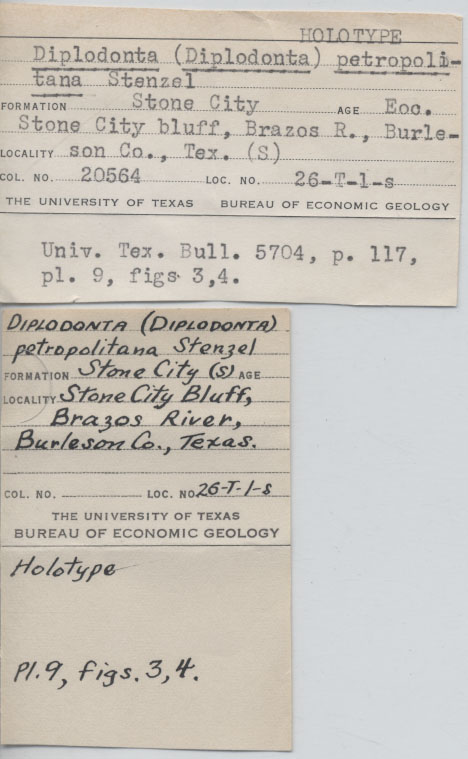 HOLOTYPE
Diplodonta (Diplodonta) petropoli-
tana Stenzel
FORMATION Stone City AGE Eoc.
Stone City bluff, Brazos R., Burle-
LOCALITY son Co., Tex. (S)
COL. NO. 20564 LOC. NO. 26-T-1-s
THE UNIVERSITY OF TEXAS BUREAU OF ECONOMIC GEOLOGY
Univ. Tex. Bull. 5704, p. 117,
pl. 9, figs. 3,4.
DIPLODONTA (DIPLODONTA)
petropolitana Stenzel
FORMATION Stone City (S) AGE
LOCALITY Stone City Bluff,
Brazos River,
Burleson Co., Texas.
COL. NO. LOC. NO. 26-T-1-s
THE UNIVERSITY OF TEXAS
BUREAU OF ECONOMIC GEOLOGY
Holotype
Pl. 9, figs. 3, 4.